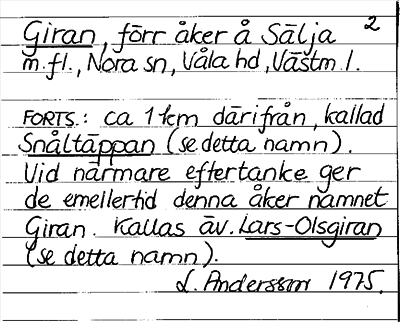 2
Giran, förr åker å Sälja
m.fl., Nora sn, Våla hd, Västm l.
FORTS.: ca 1 km därifrån, kallad
Snåltäppan (se detta namn).
Vid närmare eftertanke ger
de emellertid denna åker namnet
Giran. Kallas äv. Lars-Olsgiran
(se detta namn).
L. Andersson 1975.